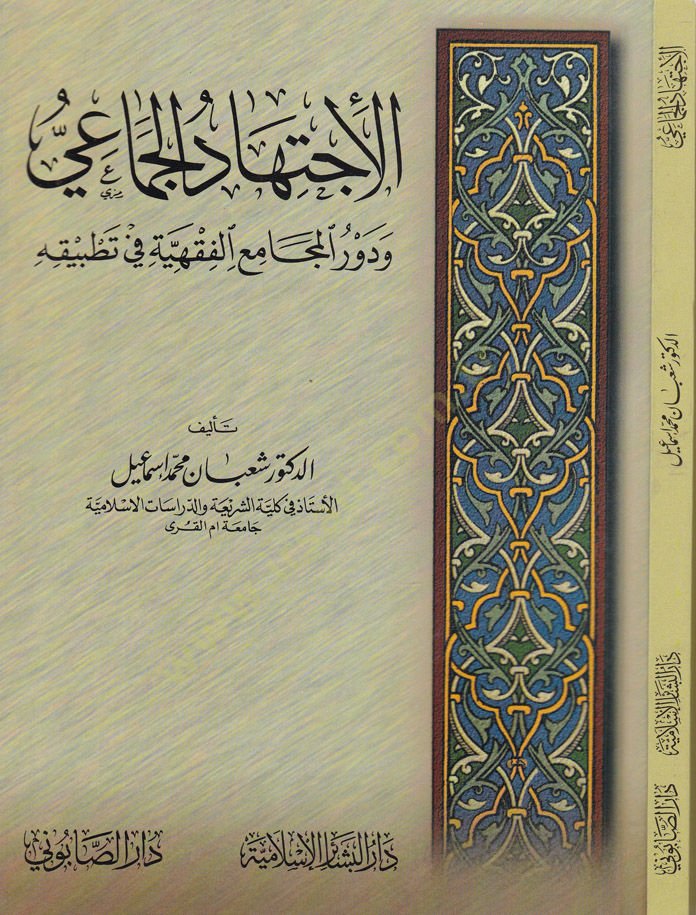 الاجْتِهَادُ الجَمَاعِيُّ
وَدَوْرُ المَجَامِعِ الفِقْهِيَّةِ فِيْ تَطْبِيْقِهِ
تأليف
الدكتور شعبان محمد إسماعيل
الأستاذ في كلية الشريعة والدراسات الاسلامية
جامعة ام القرى
دَارُ البَشَائِرِ الإِسْلَامِيَّة
دَارُ الصَّابُونِي
الاجتهاد الجماعي
الدكتور شعبان محمد إسماعيل
دَارُ البَشَائِرِ الإِسْلَامِيَّة
دَارُ الصَّابُونِي